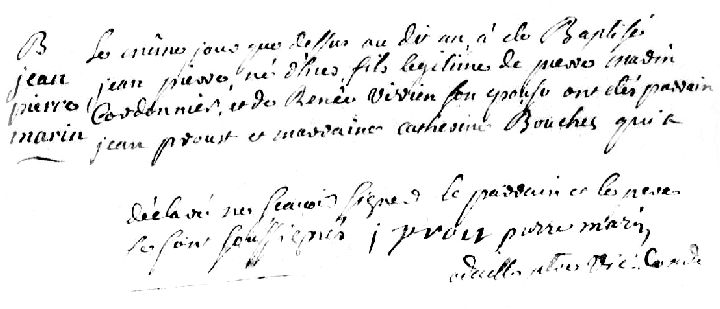 B
jean
pierre
marin
Le même jour que dessus au dit an, a été Baptisé
jean pierre, né d'hier, fils legitime de pierre marin
Cordonnier, et de Renée Vivien son epouse ont étés parrain
jean proust et marraine catherine Boucher qui a
déclaré ne sçavoir signer le parrain et le pere
se sont soussignés j prout pierre marin